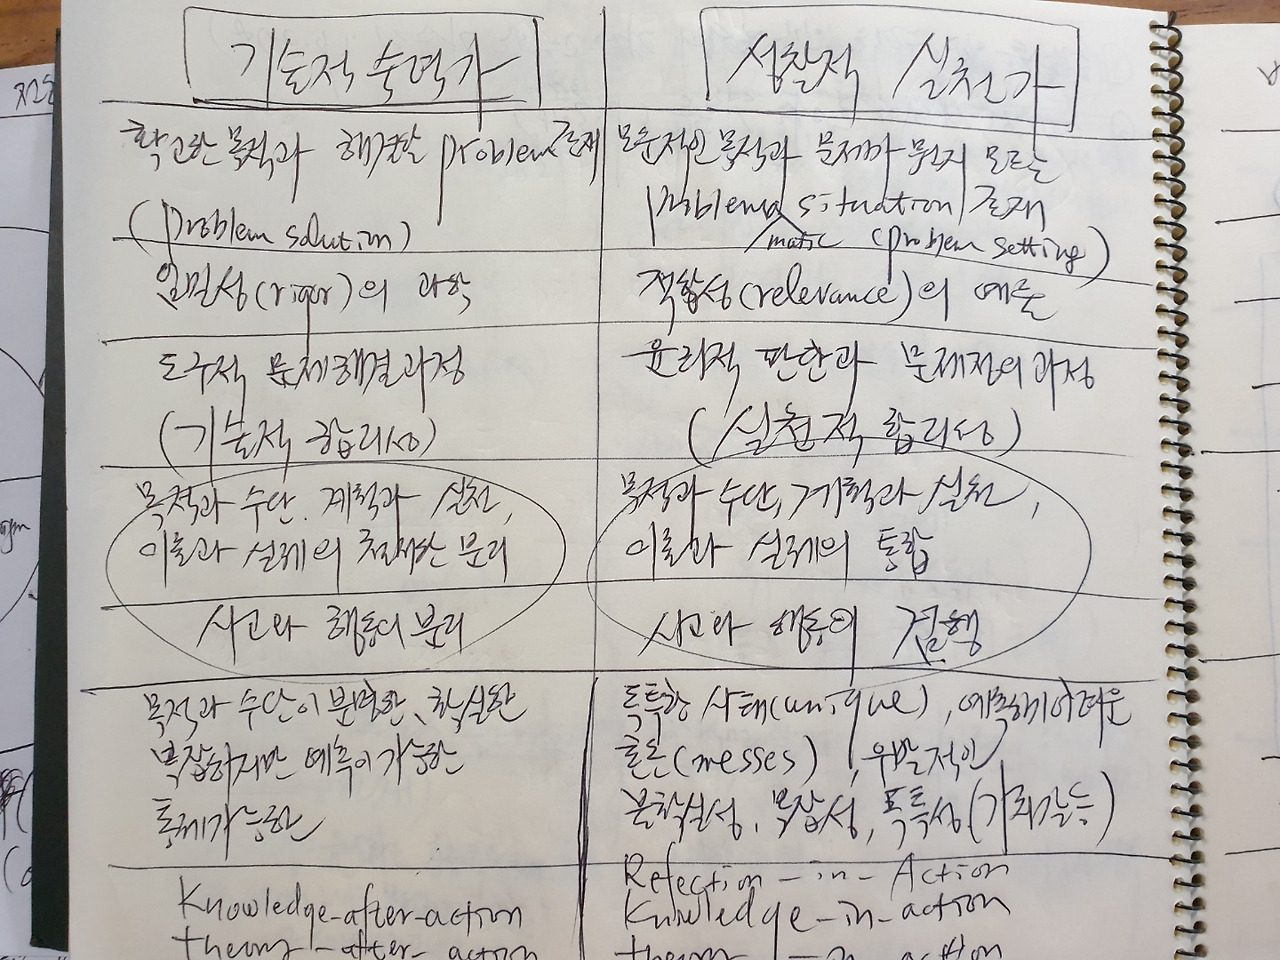 기술적 숙련가
성찰적 실천가
확고한 목적과 해결할 problem 존재
(problem solution)
모순적인 목적과 문제가 뭔지 모르는
problem situation 존재
matic (problem setting)
엄밀성(rigor)의 과학
적합성(relevance)의 예술
도구적 문제해결과정
(기술적 합리성)
윤리적 판단과 문제정의과정
(실천적 합리성)
목적과 수단, 계획과 실천,
이론과 실제의 철저한 분리
목적과 수단, 계획과 실천,
이론과 실제의 통합
사고와 행동의 분리
사고와 행동의 병행
목적과 수단이 분명한, 확실한
복잡하지만 예측이가능한
통제가능한
독특한 사태(unique), 예측하기어려운
혼돈(messes), 우발적인
불확실성, 복잡성, 독특성(가치갈등)
Knowledge-after-action
theory-after-action
Refection-in-Action
Knowledge-in-action
theory-in-action